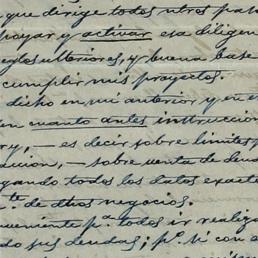 que dirige todos otros pa
poyar y activar esa diligen
eglos ulteriores, y buena base
cumplir mis proyectos.
dicho en mi anterior y en e
en cuanto antes instruccion
ry, — es decir sobre limites y
dacion, — sobre venta de deud
gando todos los datos exacto
te de dhos negocios.
veniente pa. todos ir realiza
do sus deudas; po. si con a